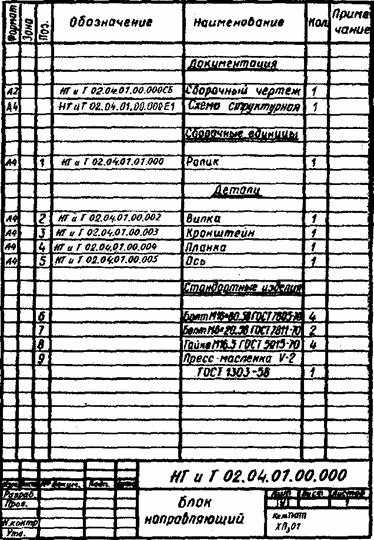 Формат Зона Поз. Обозначение Наименование Кол. Приме-
чание
Документация
А2 НГ и Т 02.04.01.00.000СБ Сборочный чертеж 1
А4 НГ и Т 02.04.01.00.000Е1 Схема структурная 1
Сборочные единицы
А4 1 НГ и Т 02.04.01.01.000 Ролик 1
Детали
А4 2 НГ и Т 02.04.01.00.002 Вилка 1
А4 3 НГ и Т 02.04.01.00.003 Кронштейн 1
А4 4 НГ и Т 02.04.01.00.004 Планка 1
А4 5 НГ и Т 02.04.01.00.005 Ось 1
Стандартные изделия
6 Болт ГОСТ 4
7 Болт ГОСТ 7811-70 2
8 Гайка М16.5 ГОСТ 5915-70 4
9 Пресс-масленка V-2
ГОСТ 1303-58 1
НГ и Т 02.04.01.00.000
Разраб.
Пров.
Н.контр
Утв.
Блок
направляющий
Лит. Лист Листов
1
ХП 01